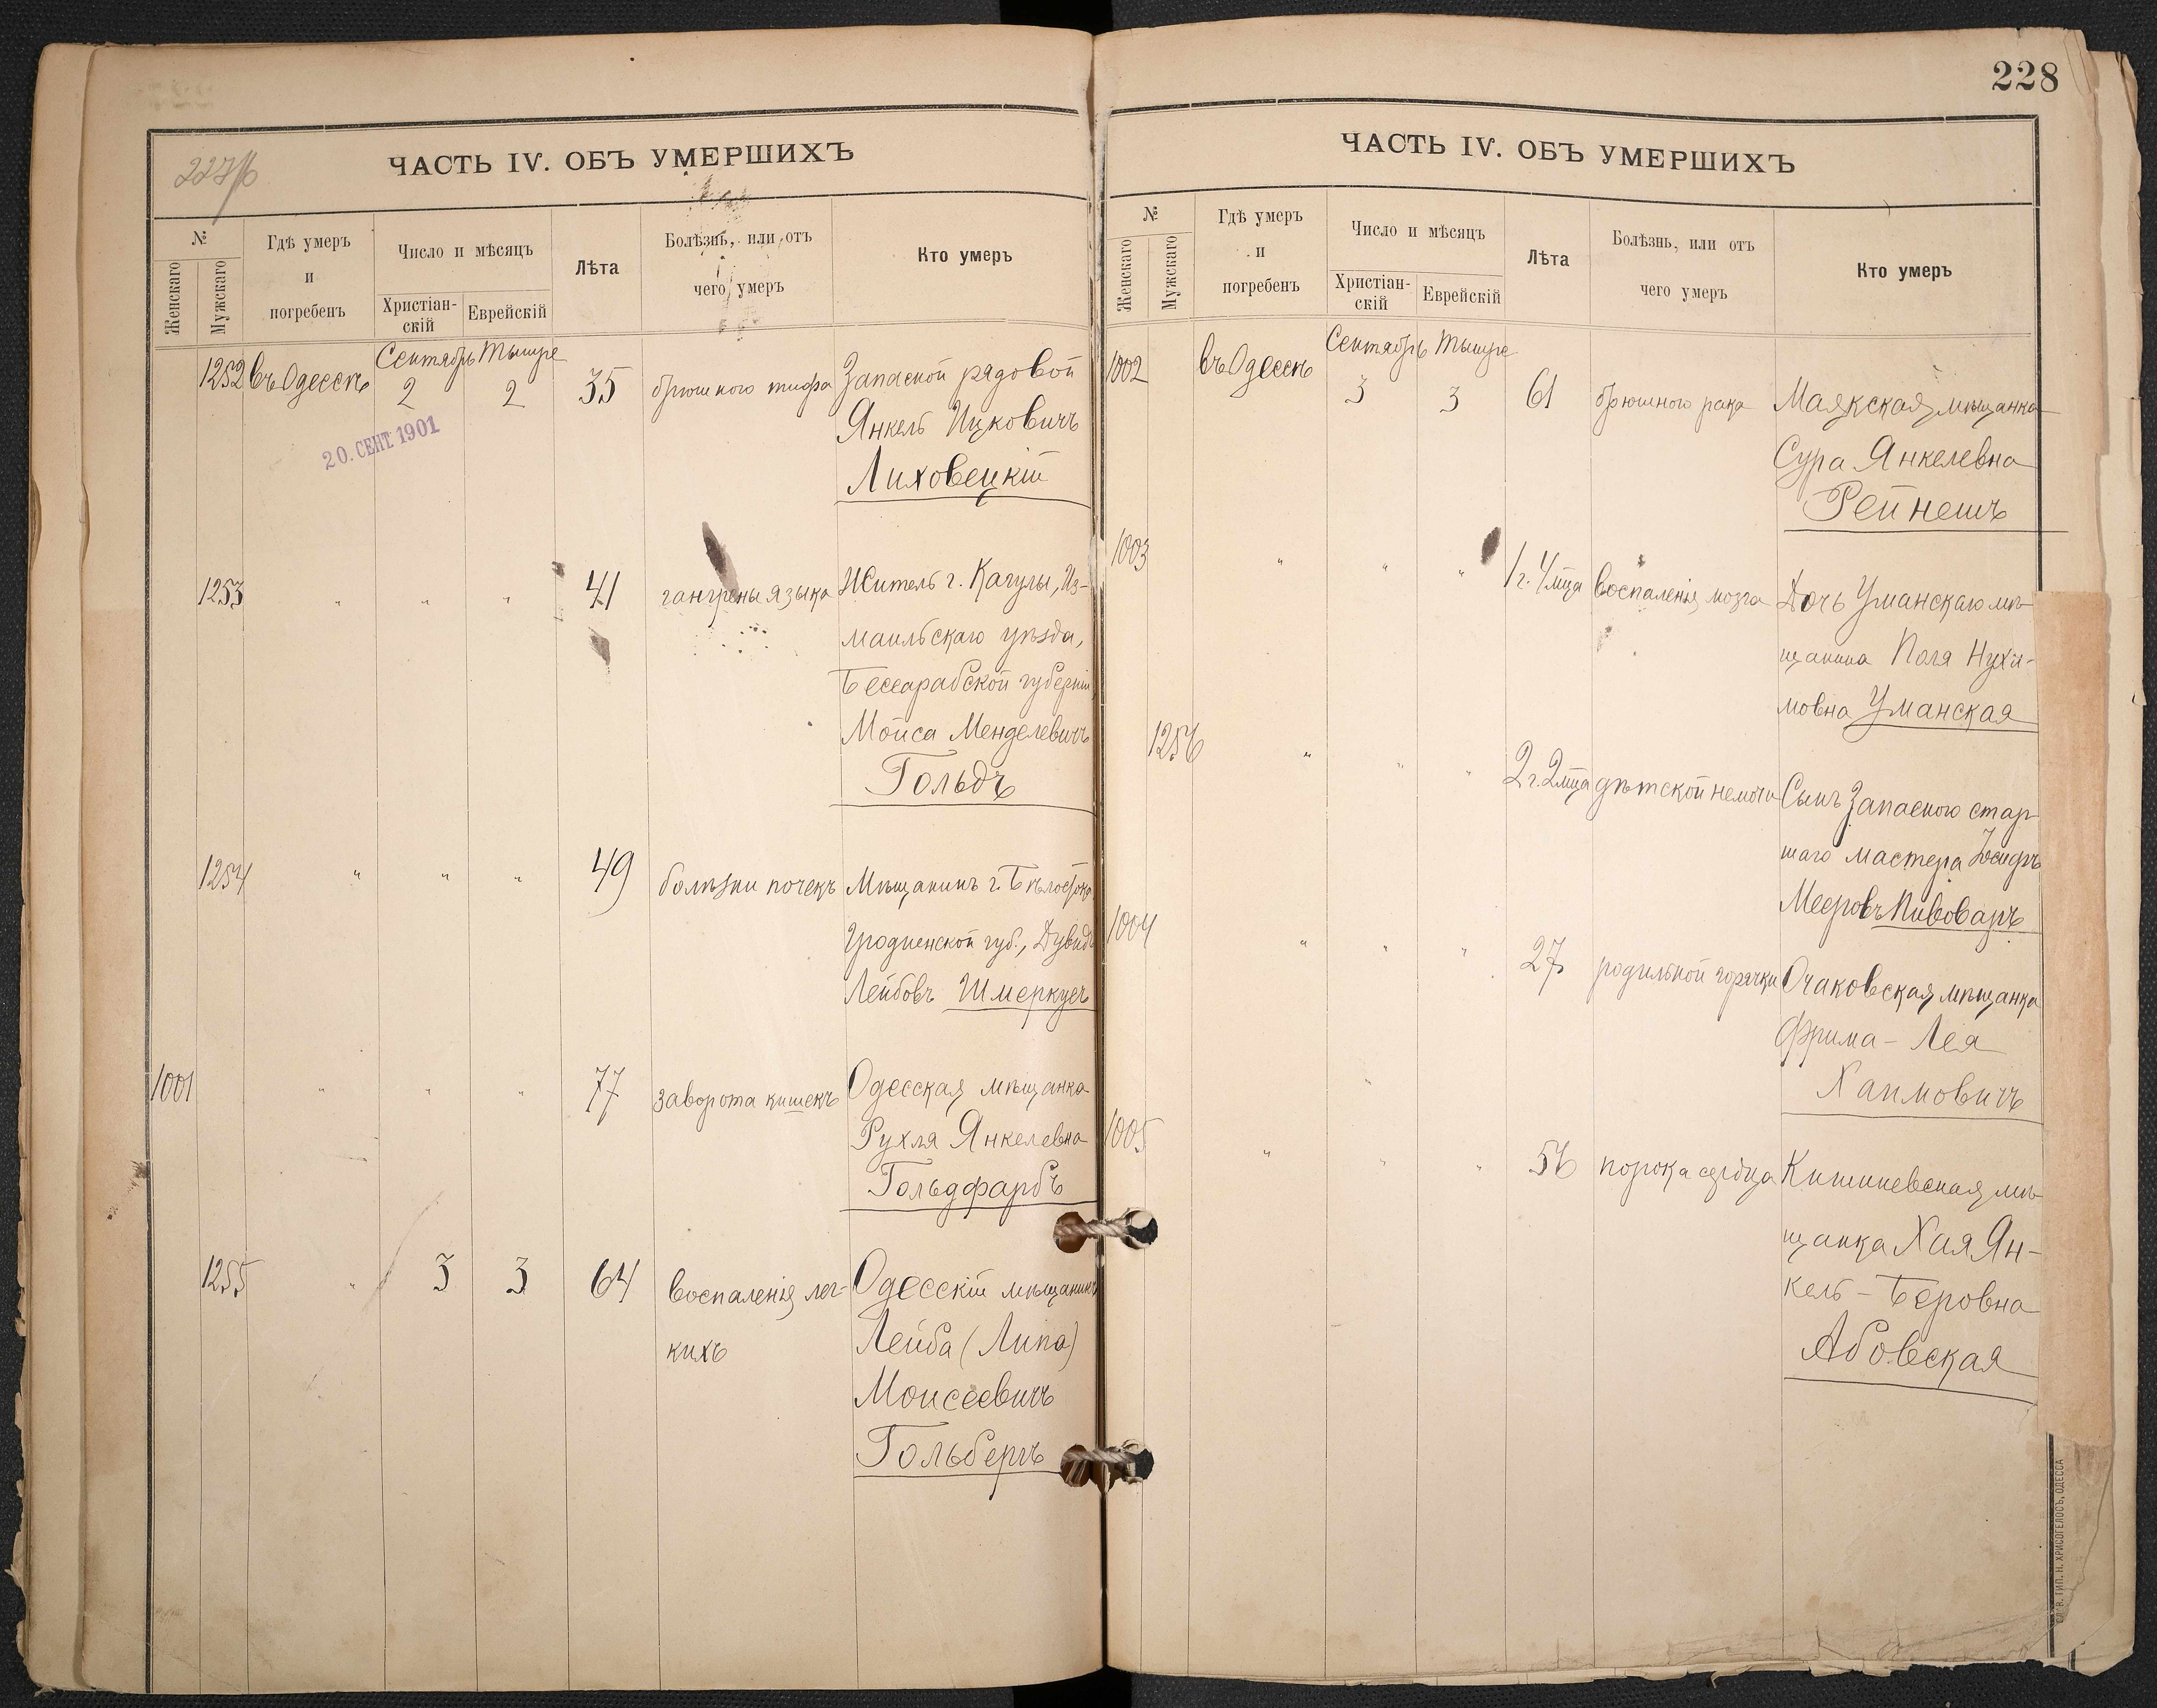 228
227/б
ЧАСТЬ IV. ОБЪ УМЕРШИХЪ
№
Женскаго
Мужскаго
Гдѣ умеръ
и
погребенъ
Число и мѣсяцъ
Христіан-
скій
Еврейскій
Лѣта
Болѣзнь, или отъ
чего умеръ
Кто умеръ
Сентябрь Тышре
1252 въ Одессѣ 2 2 35 брюшного тифа Запасной рядовой
Янкель Ицковичъ
Лиховецкій
20. СЕНТ. 1901
1253 " " " 41 гангрены языка Житель г. Кагулы, Из-
маильскаго уѣзда,
Бессарабской губерніи
Мойса Менделевичъ
Гольдъ
1254 " " " 49 болѣзни почекъ Мѣщанинъ г. Бѣлостока
Гродненской губ., Дувидъ
Лейбовъ Шмеркесъ
1001 " " " 77 заворота кишекъ Одесская мѣщанка
Рухля Янкелевна
Гольдфарбъ
1255 " 3 3 64 воспаленія лег- Одесскій мѣщанинъ
кихъ Лейба (Липа)
Моисеевичъ
Гольбергъ
ЧАСТЬ IV. ОБЪ УМЕРШИХЪ
№
Женскаго
Мужскаго
Гдѣ умеръ
и
погребенъ
Число и мѣсяцъ
Христіан-
скій
Еврейскій
Лѣта
Болѣзнь, или отъ
чего умеръ
Кто умеръ
Сентябрь Тышре
1002 въ Одессѣ 3 3 61 брюшного рака Маякская мѣщанка
Сура Янкелевна
Рейнешъ
1003 " " " 1 г. 4 мѣца воспаленія мозга Дочь Уманскаго мѣ-
щанина Поля Нухи-
мовна Уманская
1256 " " " 2 г. 2 мѣца дѣтской немочи Сынъ Запасного стар-
шаго мастера Іосифъ
Мееровъ Пивоваръ
1004 " " " 27 родильной горячки Очаковская мѣщанка
Фрима - Лея
Хаимовичъ
1005 " " " 56 порока сердца Кишиневская мѣ-
щанка Хая Ян-
кель - Беровна
Абовская
СЛ. В. ТИП. Н. ХРИСОГЕЛОСЪ, ОДЕССА